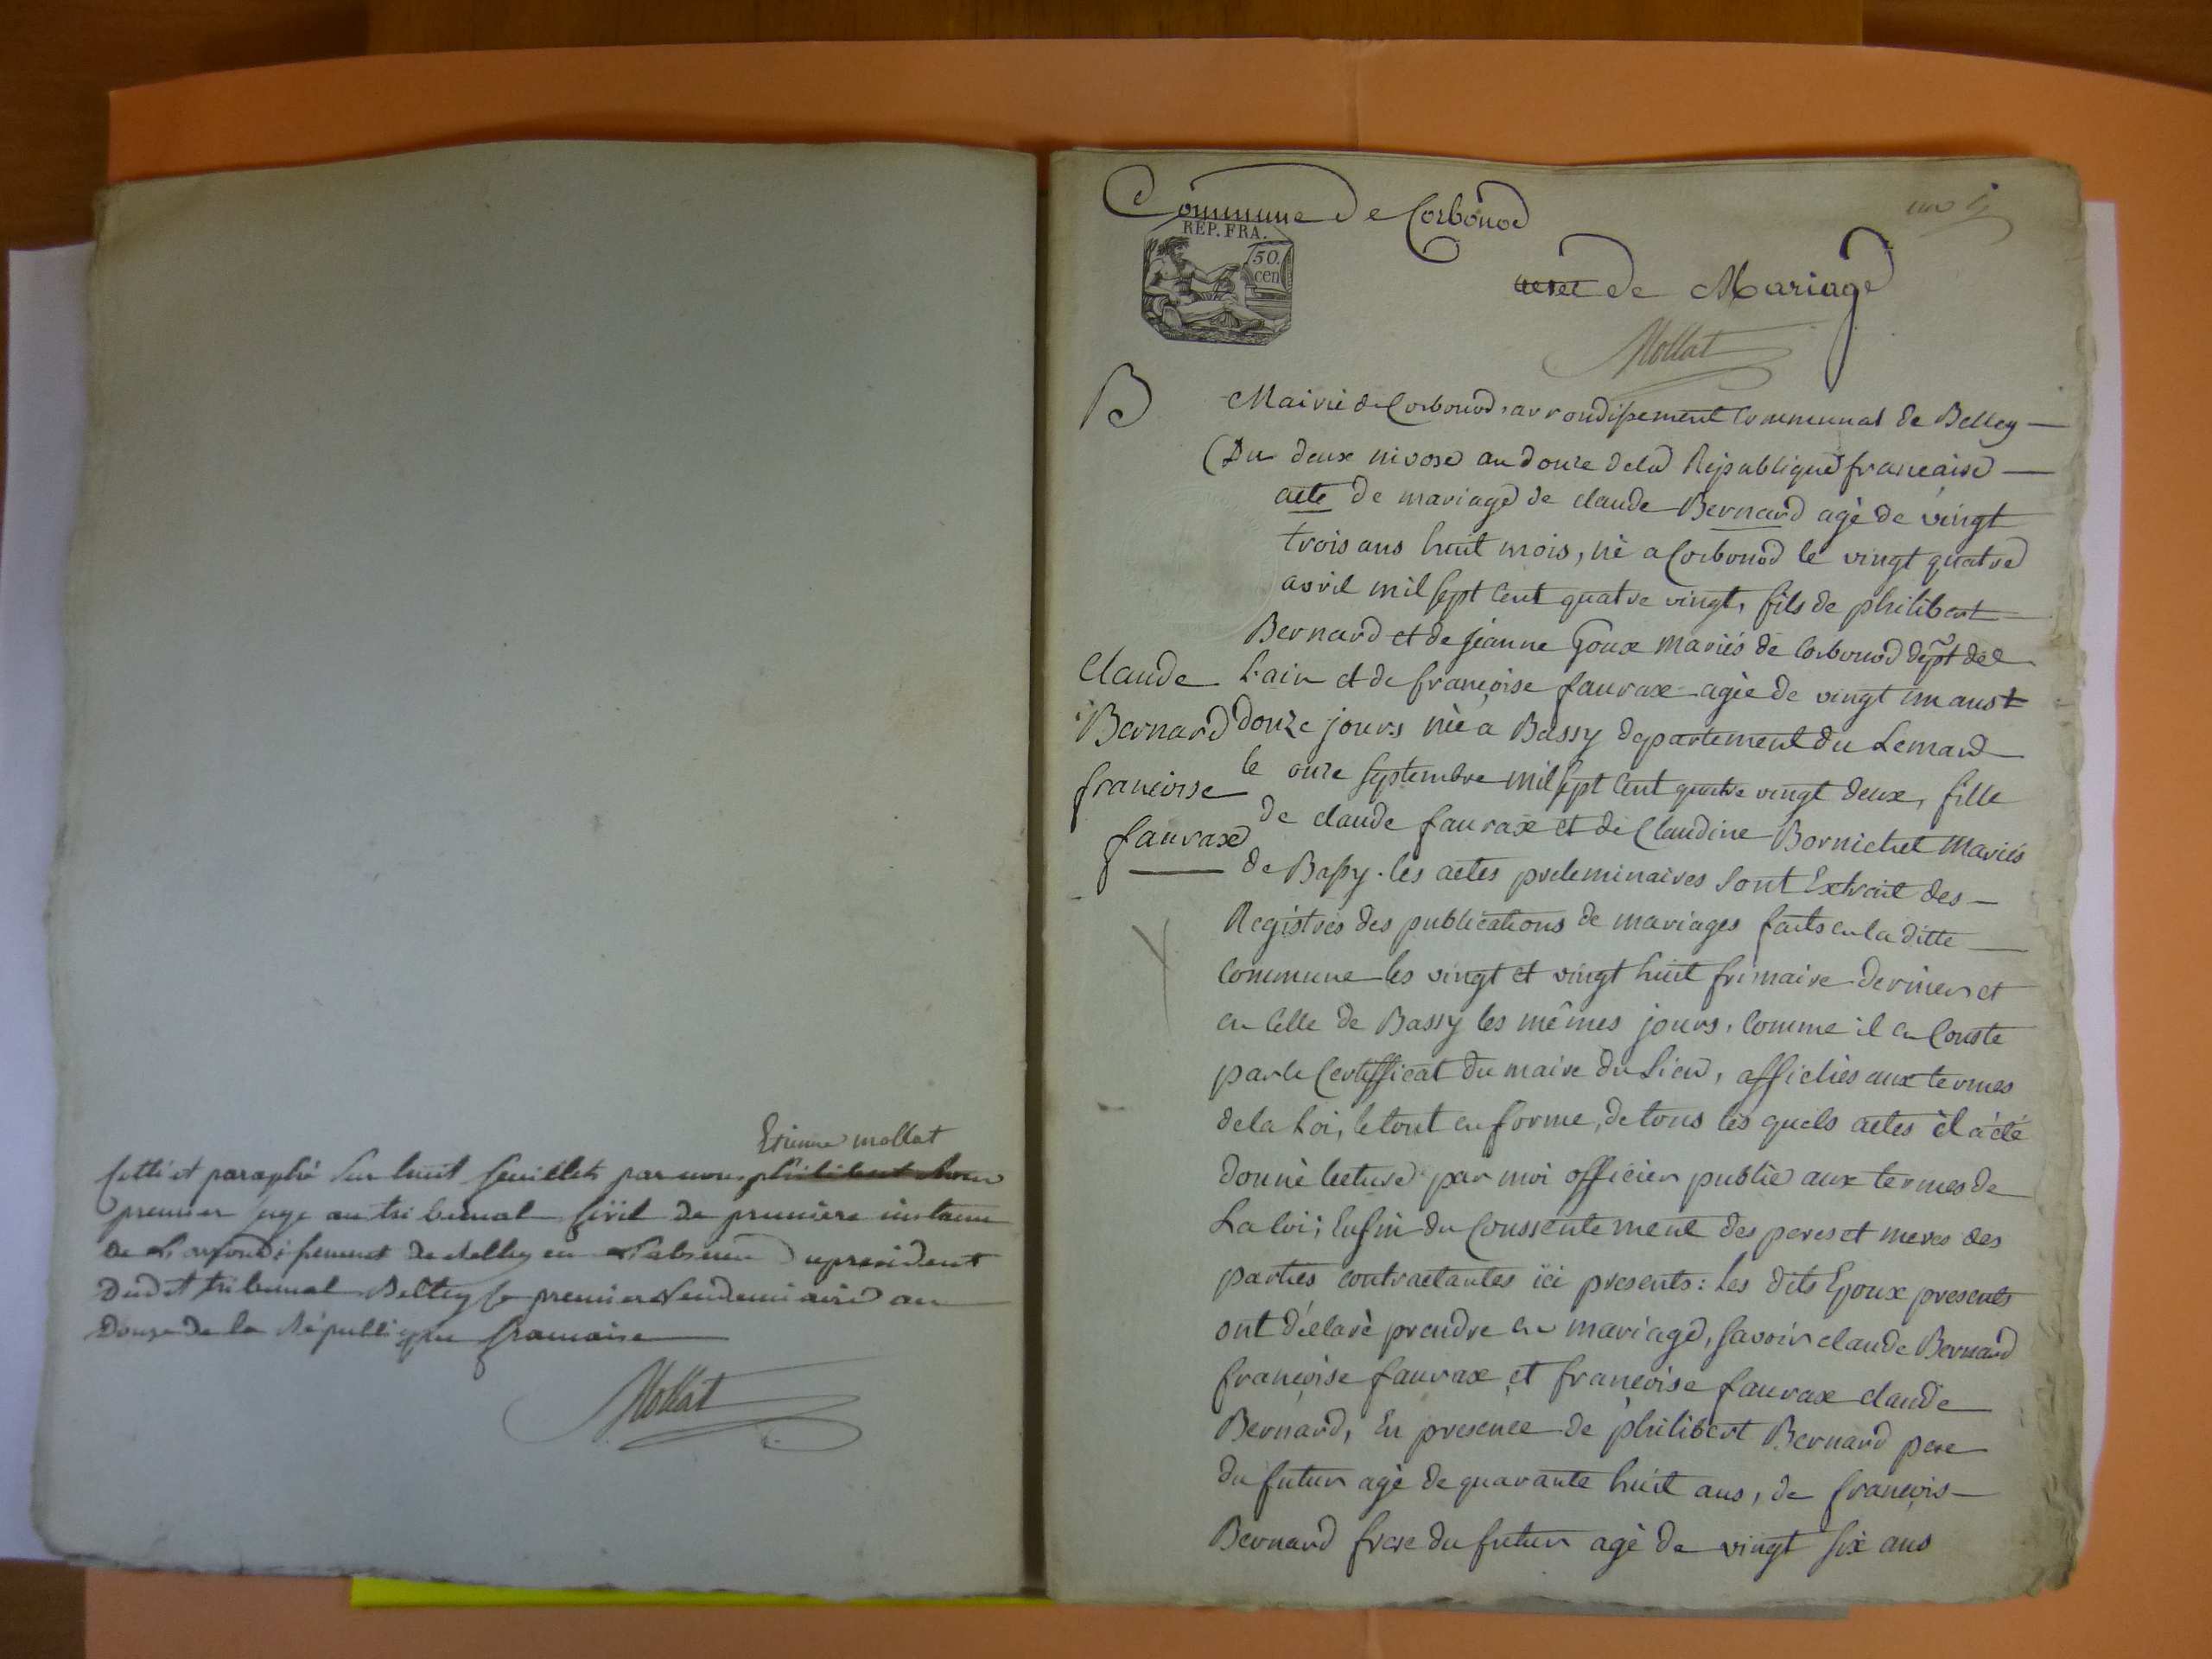 Etienne mollat
Cotté et paraphé sur huit feuillets par nous philibert
premier juge au tribunal Civil de premiere instance
de L'arrondissement de Belley en L'absence du president
dudit tribunal Belley le premier Vendemiaire an
Douze de la République francaise
Mollat
un
Commune de Corbonod
REP. FRA.
50.
cen
actes de Mariage
Mollat
B
Mairie de Corbonod, arrondissement Communal de Belley
Du deux nivose an douze de la République francaise
acte de mariage de claude Bernard agé de vingt
trois ans huit mois, né a Corbonod le vingt quatre
avril mil sept Cent quatre vingt, fils de philibert
Bernard et de jeanne Goux mariés de Corbonod dept. de
L'ain et de françoise faurax agée de vingt un ans
douze jours née a Bassy departement du Leman
le onze septembre mil sept Cent quatre vingt deux, fille
de claude faurax et de Claudine Bornichet mariés
de Bassy. les actes preleminaires sont Extrait des
Registres des publications de mariages faits en la ditte
Commune les vingt et vingt huit frimaire dernier et
en Celle de Bassy les mêmes jours, Comme il en Conste
par le Certifficat du maire du Lieu, affichés aux termes
de la Loi, le tout en forme, de tous les quels actes il a été
donné lecture par moi officier public aux termes de
La loi; Enfin du Consentement des peres et meres des
parties contractantes ici presents: Les dits Epoux presents
ont déclaré prendre en mariage, savoir claude Bernard
françoise faurax et françoise faurax claude
Bernard, En presence de philibert Bernard pere
du futur agé de quarante huit ans, de françois
Bernard frere du futur agé de vingt six ans
Claude
Bernard
francoise
faurax